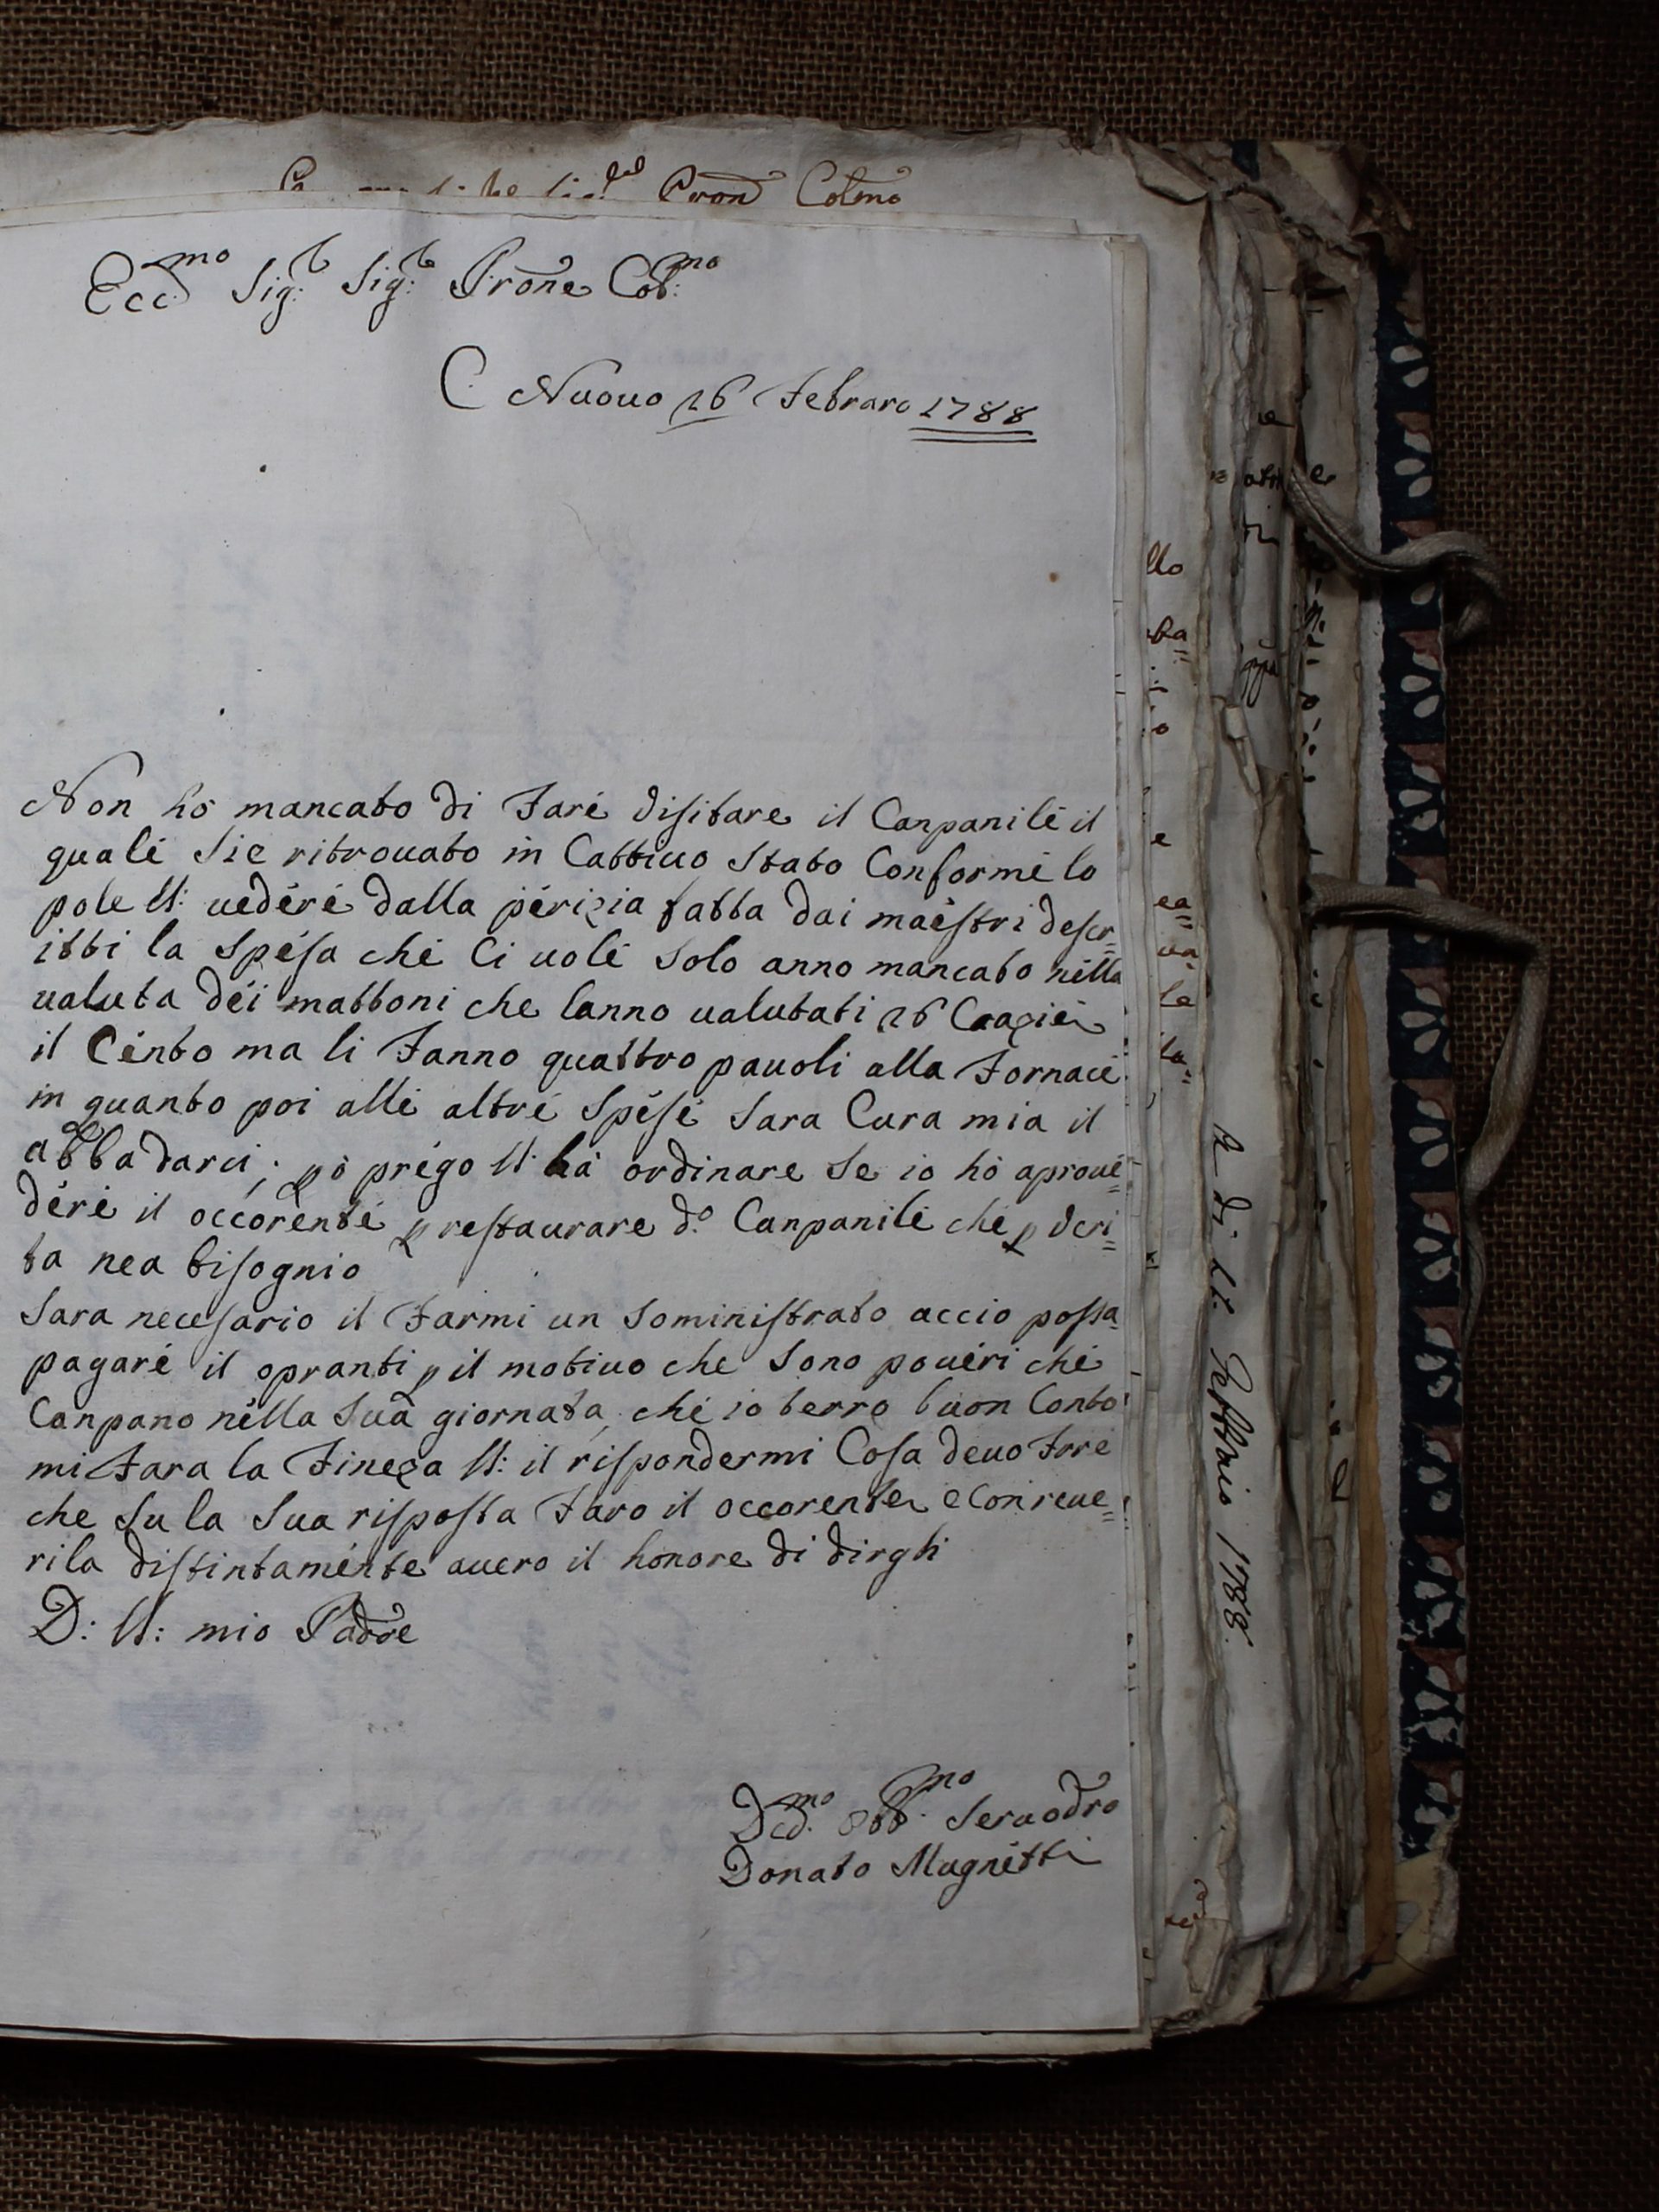 Pron Colmo
Ecc.mo Sig.r Sig.r Prone Col:mo
C Nuouo 26 Febraro 1788
Non hò mancato di Fare visitare il Canpanile il
quale Sie ritrouato in Cattiuo Stato Conforme lo
pole U: uedere dalla perizia fatta dai maestri descr=
itti la Spesa che Ci uole Solo anno mancato nella
ualuta dei mattoni che lanno ualutati 26 Crazie
il Cento ma li Fanno quattro pauoli alla Fornace
in quanto poi alle altre Spese Sara Cura mia il
abbadarci; pò prego U: hà ordinare Se io hò aproue=
dere il occorente p restaurare d.o Canpanile che p veri=
ta nea bisognio
Sara necesario il Farmi un Soministrato accio possa
pagare il opranti p il motiuo che Sono poueri che
Canpano nella Sua giornata, che io terro buon Conto
mi Fara la Fineza U: il rispondermi Cosa deuo Fare
che Su la Sua risposta Faro il occorente e Con reue=
rila distintamente auero il honore di dirgli
D: U: mio Padre
Ded.mo Obb.mo Seruodro
Donato Mugnetti
llo
ba=
e
ea=
ua
la
la=
A di 21. Febbraio 1788